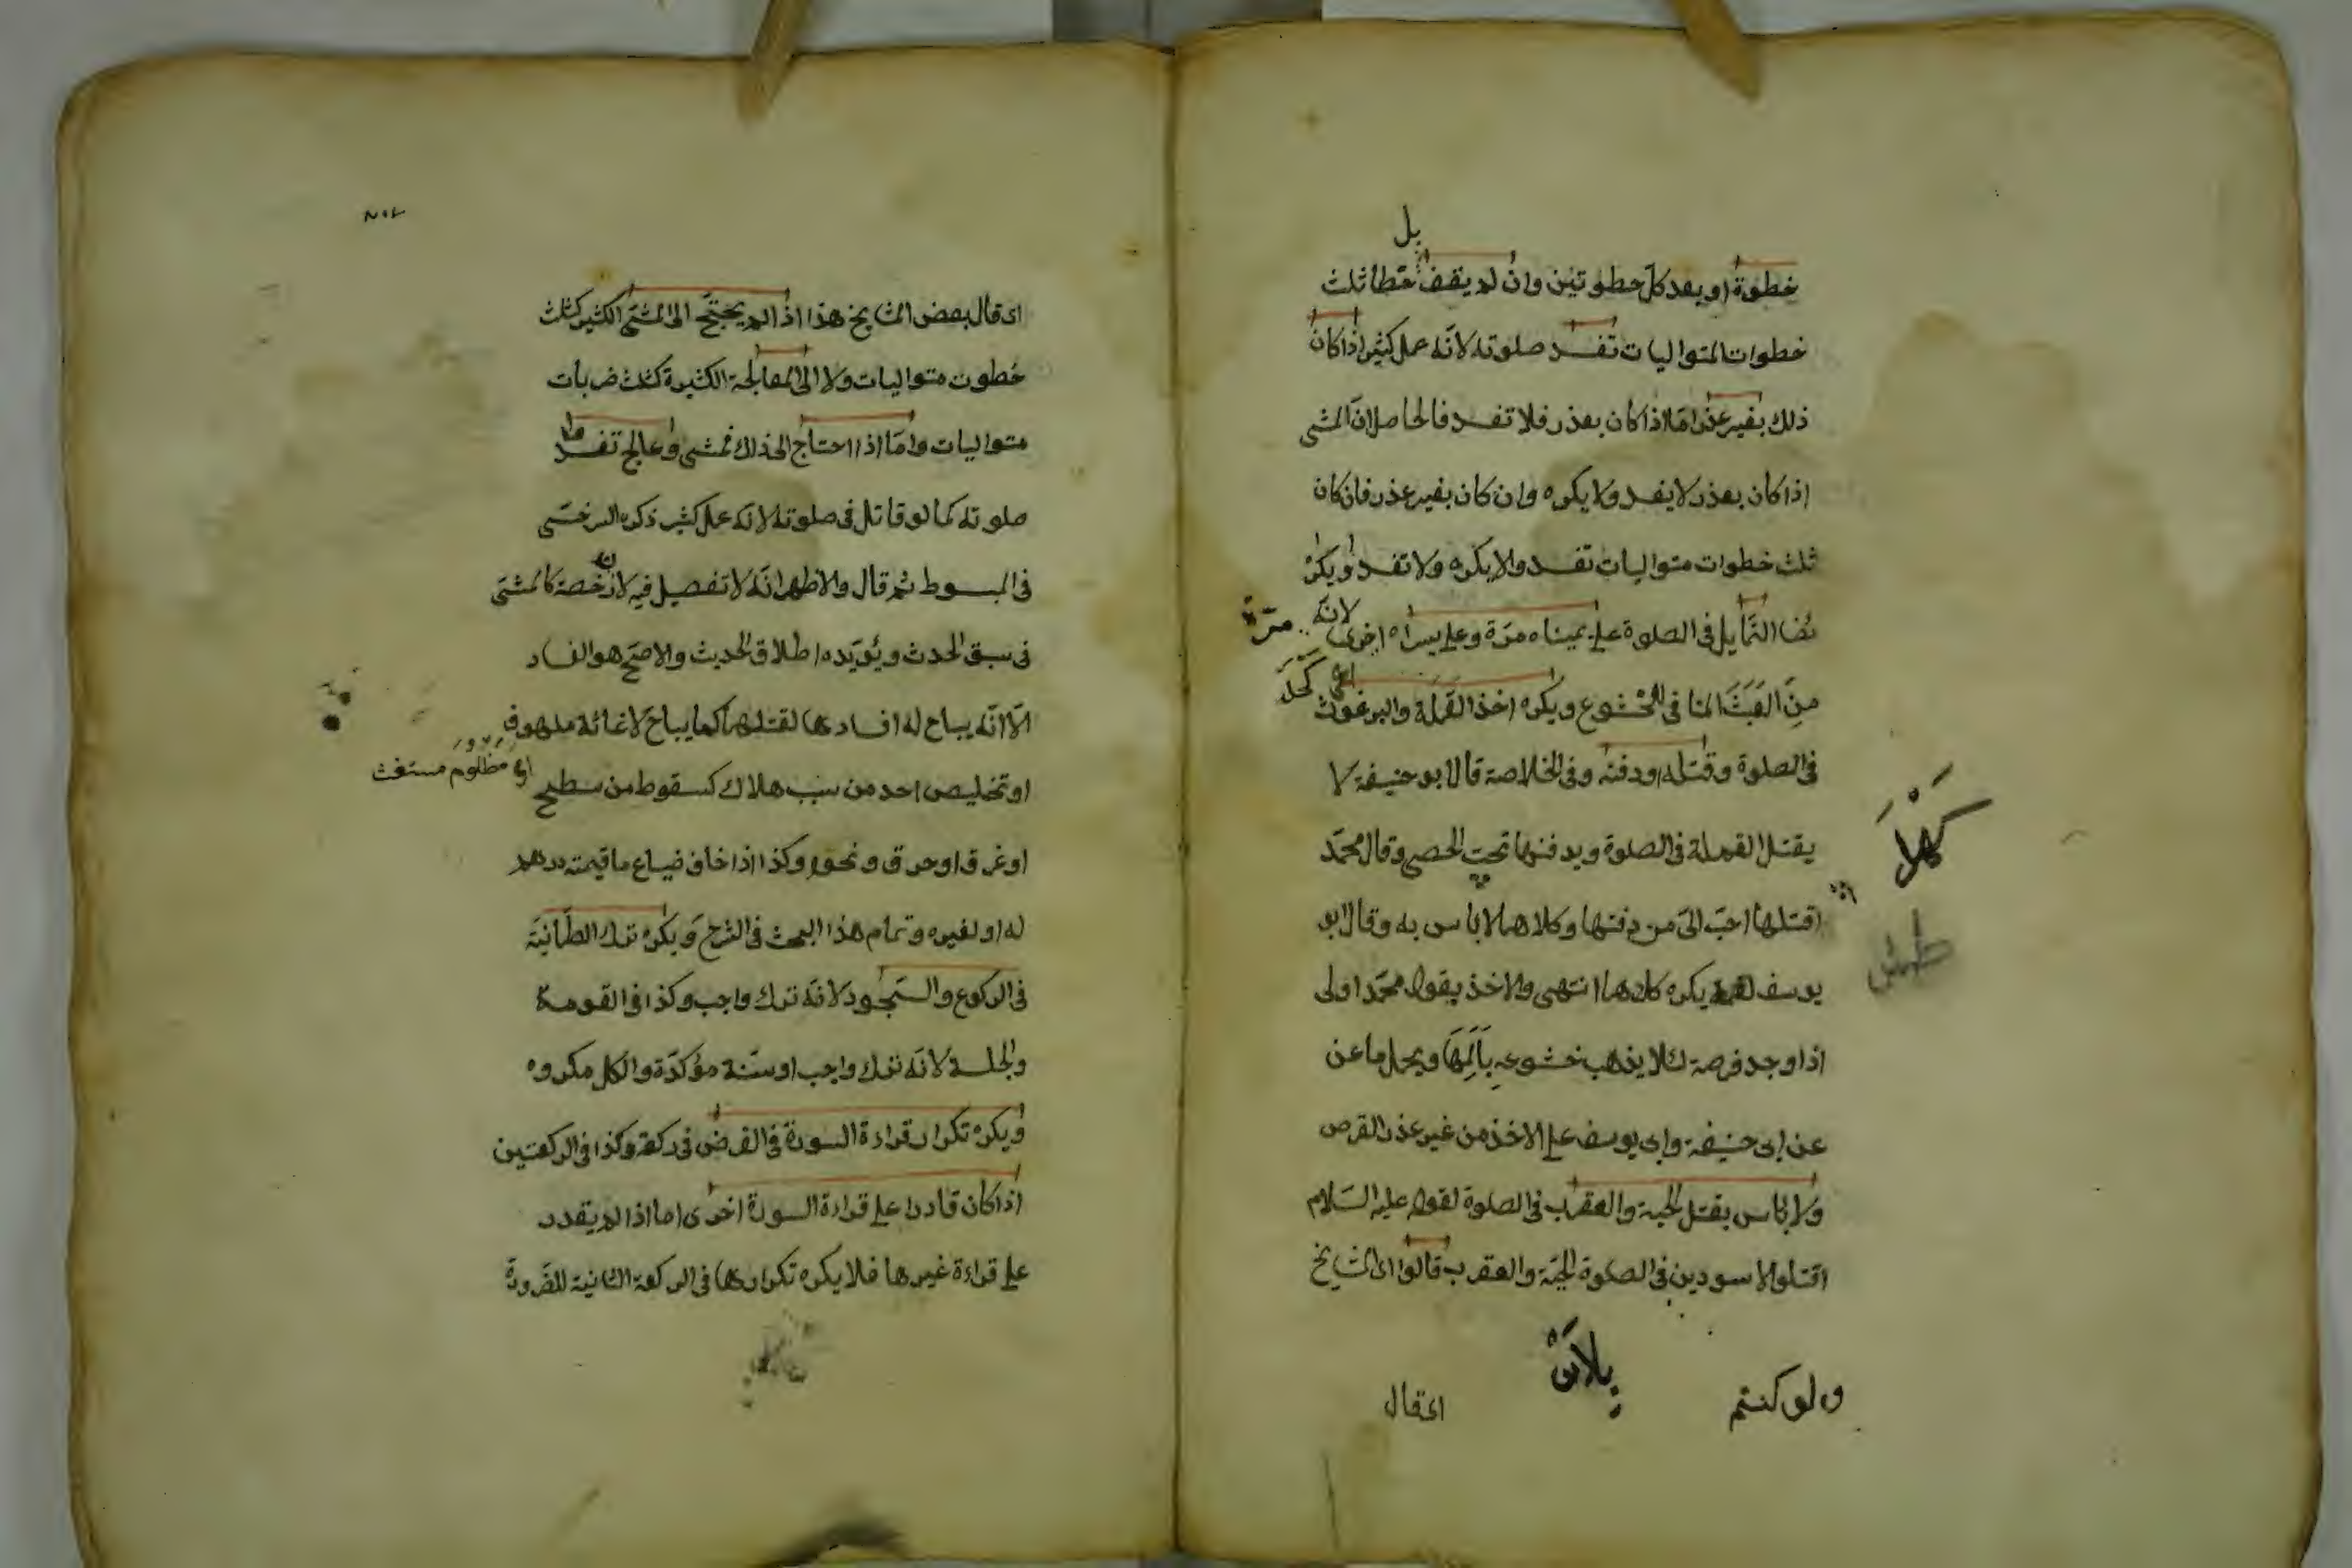 بل
خطوة او بعد كل خطوتين وان لم يقف خطا ثلث
خطوات المتواليات تفسد صلوته لانه عمل كثير اذا كان
ذلك بغير عذر اما اذا كان بعذر فلا تفسد فالحاصل ان المشى
اذا كان بعذر لا يفسد ولا يكره وان كان بغير عذر فان كان
ثلث خطوات متواليات تفسد والا يكره ولا تفسد ويكره
التمايل فى الصلوة على يميناه مرة وعلى يسراه اخرى لانه
مرة
من العبث المنافى للخشوع ويكره اخذ القملة والبرغوث
فى الصلوة وقتله او دفنه وفى الخلاصة قال ابو حنيفة لا
يقتل القملة فى الصلوة ويدفنها تحت الحصى وقال محمد
كهلا
قتلها احب الى من دفنها وكلاهما لا باس به وقال ابو
يوسف يكره كلاهما انتهى والاخذ بقول محمد اولى
اذا وجد فرصة كلا يذهب خشوعه بالمها ويحمل ما عن
عن ابى حنيفة وابى يوسف على الاخذ من غير عذر القرص
ولا باس بقتل الحية والعقرب فى الصلوة لقوله عليه السلام
اقتلوا الاسودين فى الصلوة الحية والعقرب قالوا اى المشايخ
ولو كنتم
اى قال
اى قال بعض المشايخ هذا اذا لم يحتج الى المشى الكثير كثلث
خطوت متواليات ولا الى المعالجة الكثيرة كثلث ضربات
متواليات واما اذا احتاج الى ذلك فمشى وعالج تفسد
صلوته كما لو قاتل فى صلوته لانه عمل كثير ذكره السرخسى
فى المبسوط ثم قال والاظهر انه لا تفصيل فيه لانه رخصة كالمشى
فى سبق الحدث ويؤيده اطلاق الحديث والاصح هو الفساد
الا انه يباح له افسادها لقتلهما كما يباح لاغاثة ملهوف
اى مظلوم مستغث
او تخليص احد من سبب هلاك كسقوط من سطح
او غرق او حرق ونحوه وكذا اذا خاف ضياع ما قيمته درهم
له او لغيره وتمام هذا البحث فى الشرح ويكره ترك الطمأنينة
فى الركوع والسجود لانه ترك واجب وكذا فى القومة
والجلسة لانه ترك واجب او سنة مؤكدة والكل مكروه
ويكره تكرار قراءة السورة فى الفرض فى ركعة وكذا فى الركعتين
اذا كان قادرا على قراءة السورة اخرى اما اذا لم يقدر
على قراءة غيرها فلا يكره تكرارها فى الركعة الثانية للضرورة